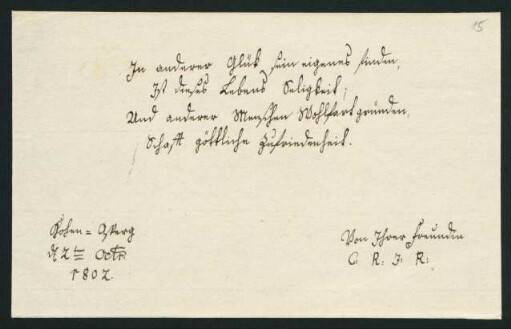 15
In anderer Glük sein eigenes finden,
Ist dieses Lebens Seligkeit;
Und anderer Menschen Wohlfart gründen,
Schafft göttliche Zufriedenheit.
Hohen = Asperg
d 2ten Octr.
1802.
Von Ihrer Freundin
C. R. J. R.